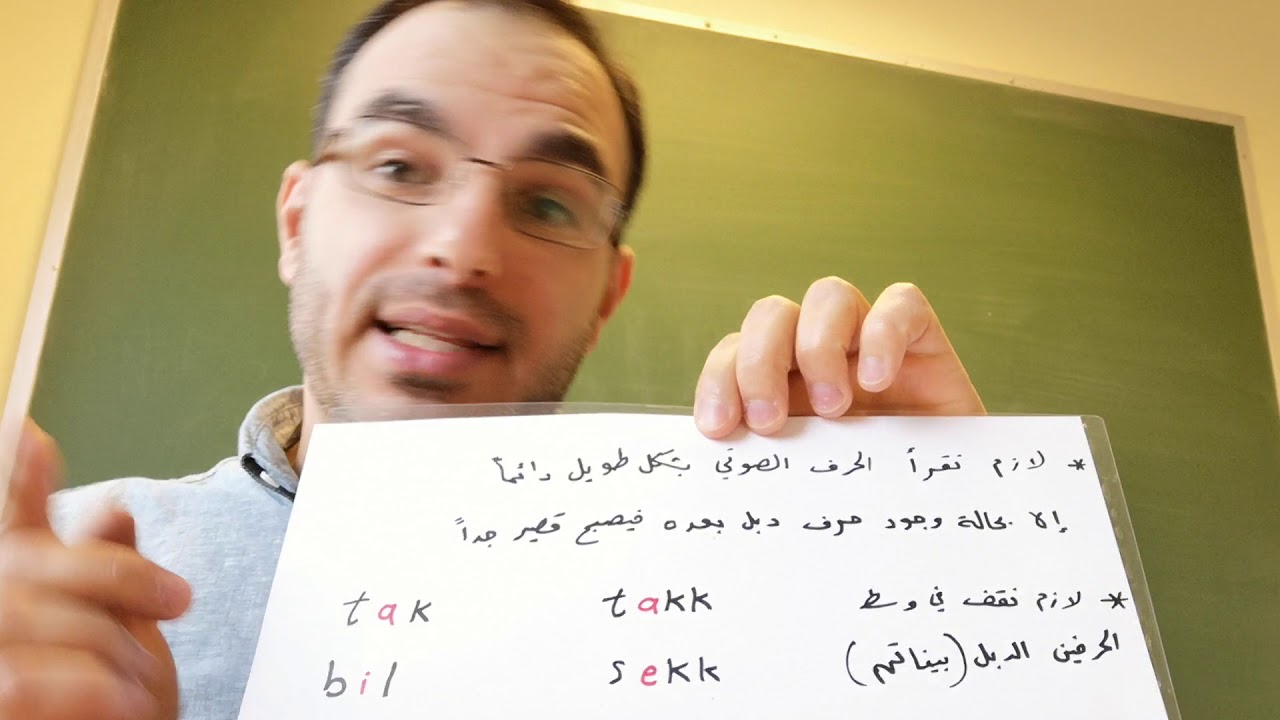 * لازم نقرأ الحرف الصوتي بشكل طويل دائماً
إلا بحالة وجود حرف دبل بعده فيصبح قصير جداً
tak takk * لازم نقف في وسط
bil sekk الحرفين الدبل (بيناتهم)